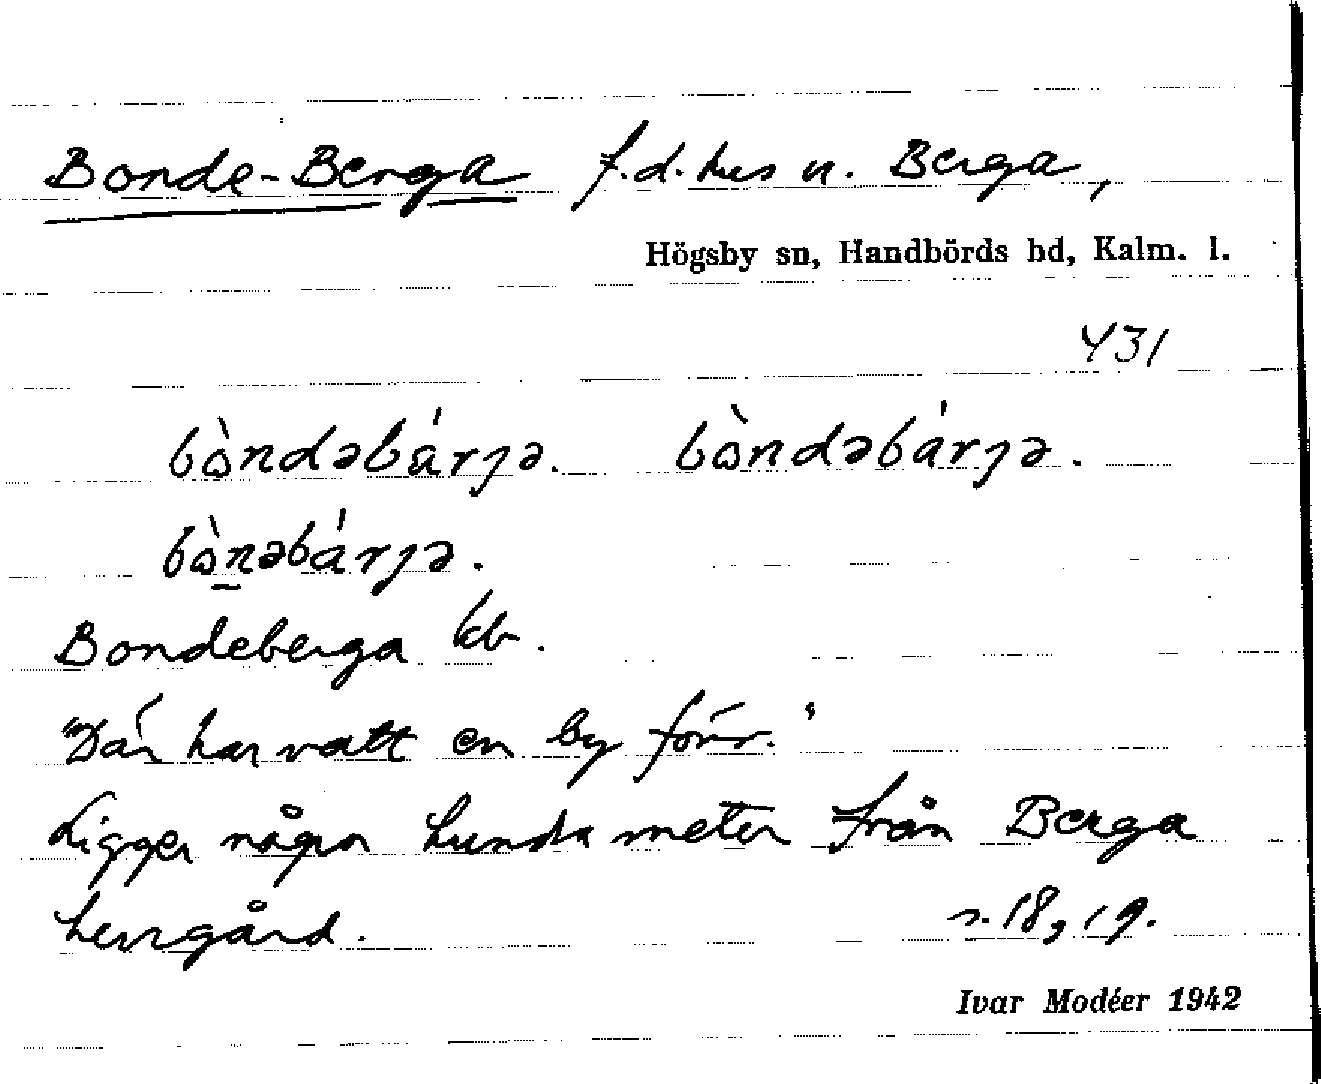 Bonde-Berga f.d. hus u. Berga,
Högsby sn, Handbörds hd, Kalm. l.
431
bòndəbárjə. bòndəbárjə.
bònəbárjə.
Bondeberga kb.
"Där har vatt en by förr."
Ligger några hundra meter från Berga
herrgård. s. 18, 19.
Ivar Modéer 1942